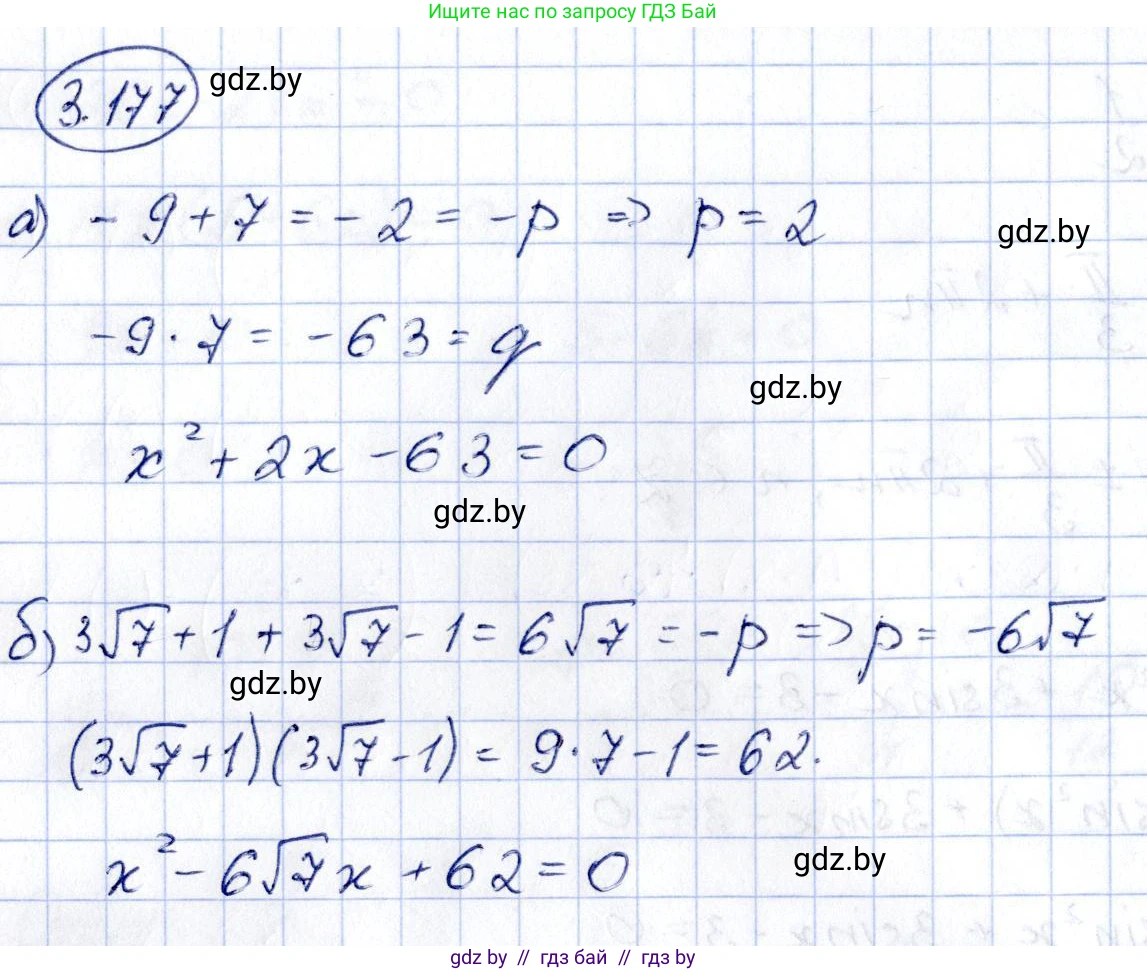 Ищите нас по запросу ГДЗ Бай
3.177 gdz.by
а) - 9 + 7 = - 2 = -p => p = 2 gdz.by
-9 · 7 = -63 = q
gdz.by
x² + 2x - 63 = 0
gdz.by
б) 3√7 + 1 + 3√7 - 1 = 6√7 = -p => p = -6√7
gdz.by
(3√7 + 1)(3√7 - 1) = 9·7 - 1 = 62.
x² - 6√7x + 62 = 0 gdz.by
gdz by // гдз бай // гдз by